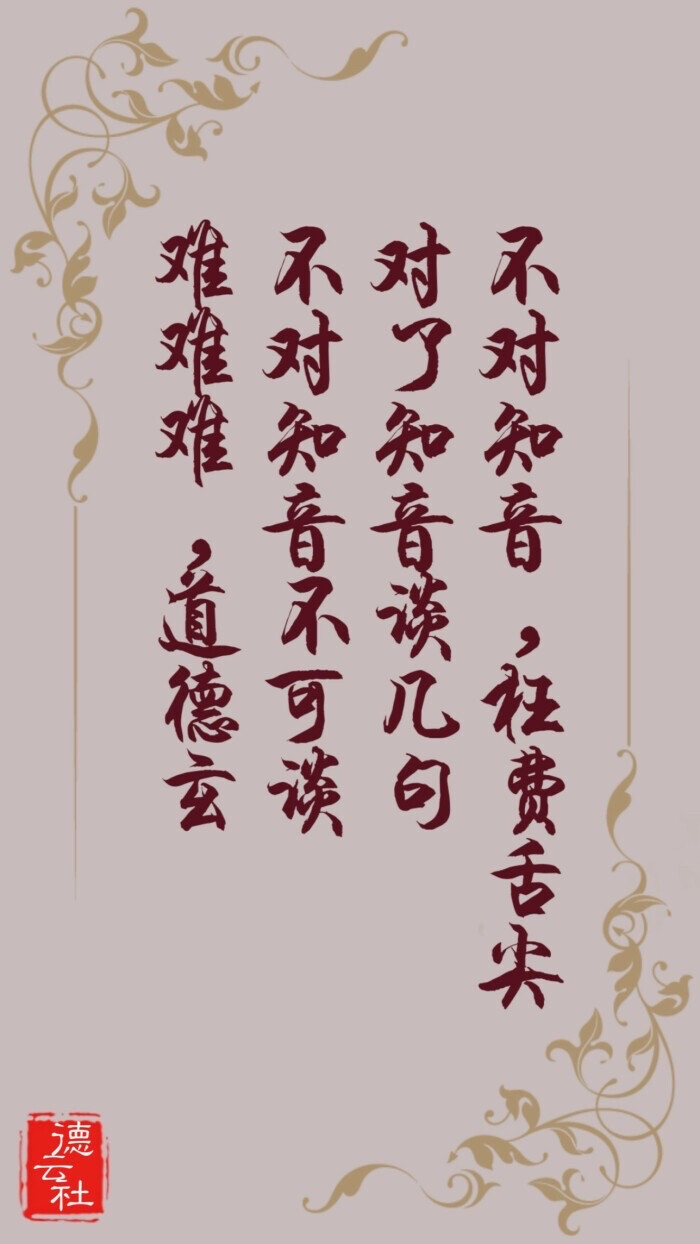 不对知音，枉费舌尖
对了知音谈几句
不对知音不可谈
难难难，道德玄
德云社